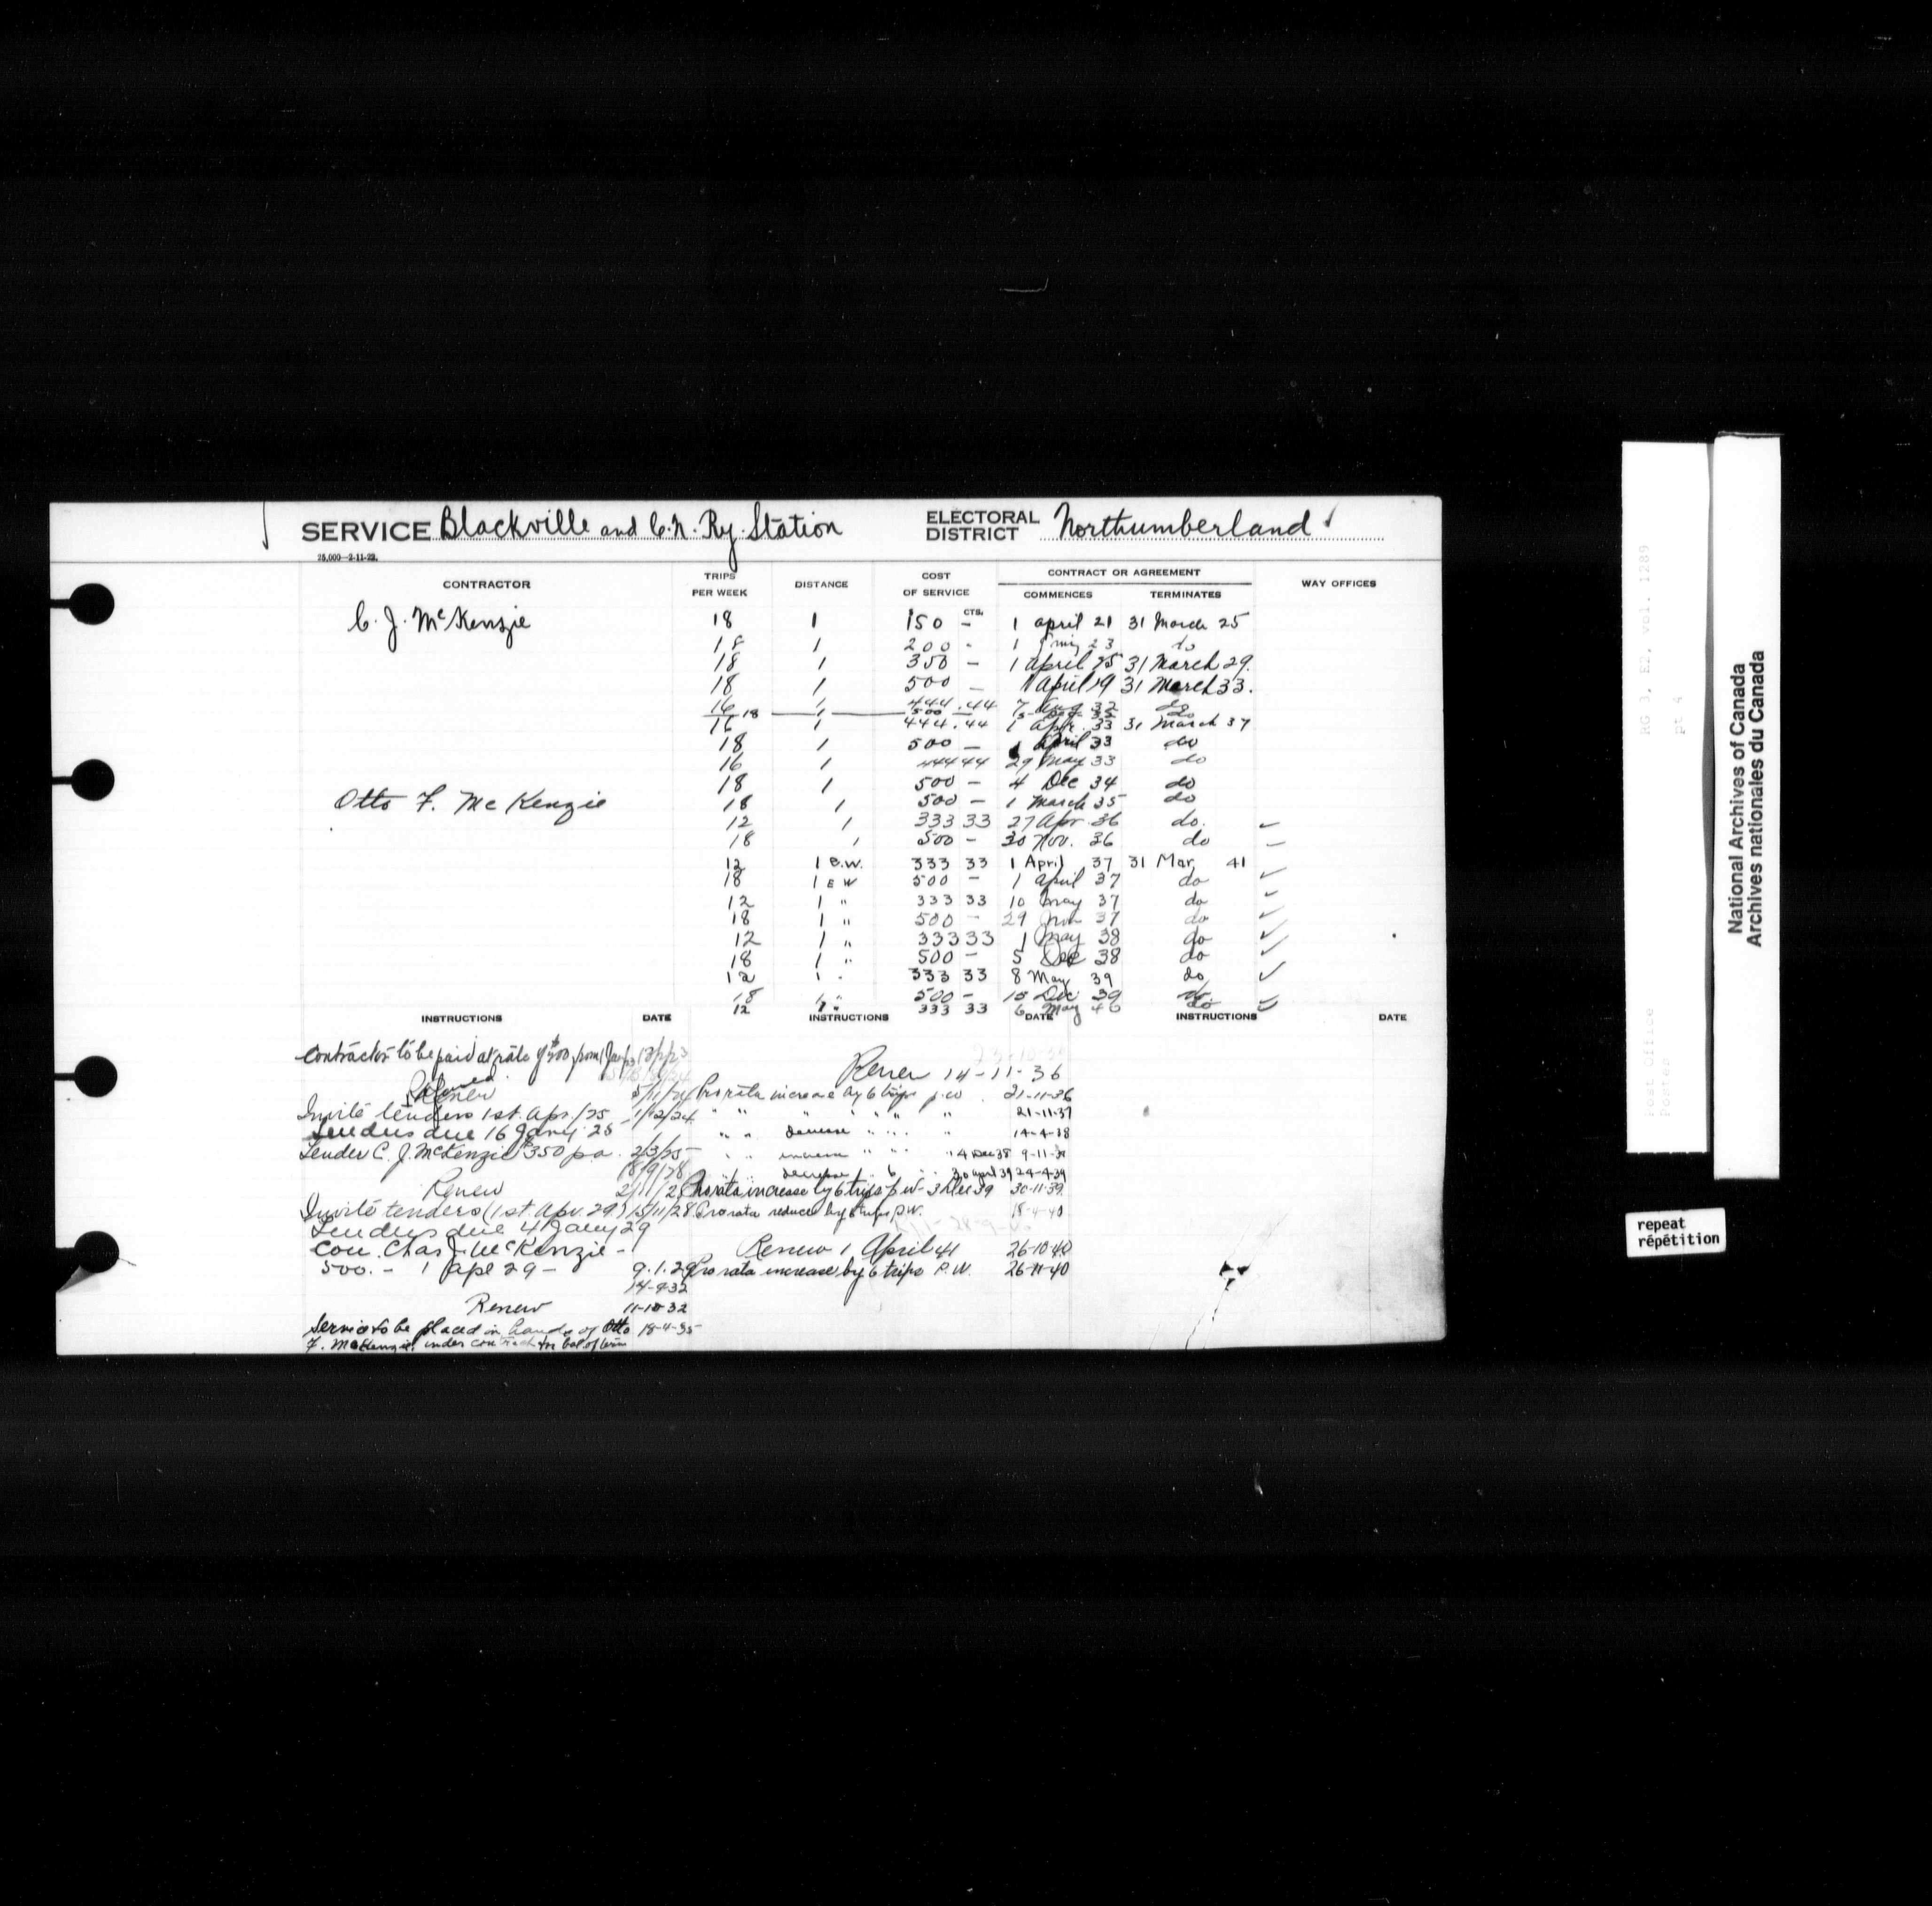 SERVICE Blackville and C.N. Ry. Station ELECTORAL DISTRICT Northumberland
25,000—2-11-22.
CONTRACTOR TRIPS PER WEEK DISTANCE COST OF SERVICE CONTRACT OR AGREEMENT WAY OFFICES
CTS. COMMENCES TERMINATES
C. J. McKenzie 18 1 $150 - 1 April 21 31 March 25
18 1 200 - 1 23 do
18 1 350 - 1 April 25 31 March 29.
18 1 500 - 1 April 29 31 March 33.
16 1 444.44 7 Aug 32 do
18 500
16 1 444.44 1 Apr. 33 31 March 37
18 1 500 - 1 April 33 do
16 1 444 44 29 May 33 do
18 1 500 - 4 Dec 34 do
Otto F. McKenzie 18 1 500 - 1 March 35 do
12 1 333 33 27 Apr. 36 do.
18 1 500 - 30 Nov. 36 do
12 1 E.W. 333 33 1 April 37 31 Mar 41
18 1 E W 500 - 1 April 37 do
12 1 " 333 33 10 May 37 do
18 1 " 500 - 29 Nov 37 do
12 1 " 333 33 1 May 38 do
18 1 " 500 - 5 Dec 38 do
12 1 " 333 33 8 May 39 do
18 1 " 500 - 18 Dec 39 do
12 1 " 333 33 6 May 40 do
INSTRUCTIONS DATE INSTRUCTIONS DATE INSTRUCTIONS DATE
Contractor to be paid at rate of $200 from 1 Jany 23
Renew 14-11-36
Renew 5/11/24 Pro rata increase by 6 trips p.w. 21-11-36
Invite tenders 1st. Apr./25 1/12/24 " " " " " " " 21-11-37
Tenders due 16 Jany. 25 " " decrease " " " " 14-4-38
Tender C. J. McKenzie $350 p.a. 2/3/25 " " increase " " " 4 Dec 38 9-11-38
18/9/28 " " decrease " 6 " " 30 April 39 24-4-39
Renew Pro rata increase by 6 trips p.w. 3 Dec 39 30-11-39.
Invite tenders (1st. Apr. 29.) 15/11/28 Pro rata reduce by 6 trips P.W. 18-4-40
Tenders due 4 Jany 29
Con. Chas J. McKenzie - Renew 1 April 41 26-10-40
500. - 1 Apl 29 - 9.1.29 Pro rata increase by 6 trips P.W. 26-11-40
14-9-32
Renew 11-10-32
Service to be placed in hands of Otto 18-4-35
F. McKenzie under contract for bal of term
RG 3, E2, vol. 1289
pt 4
Post Office
Postes
National Archives of Canada
Archives nationales du Canada
repeat
répétition